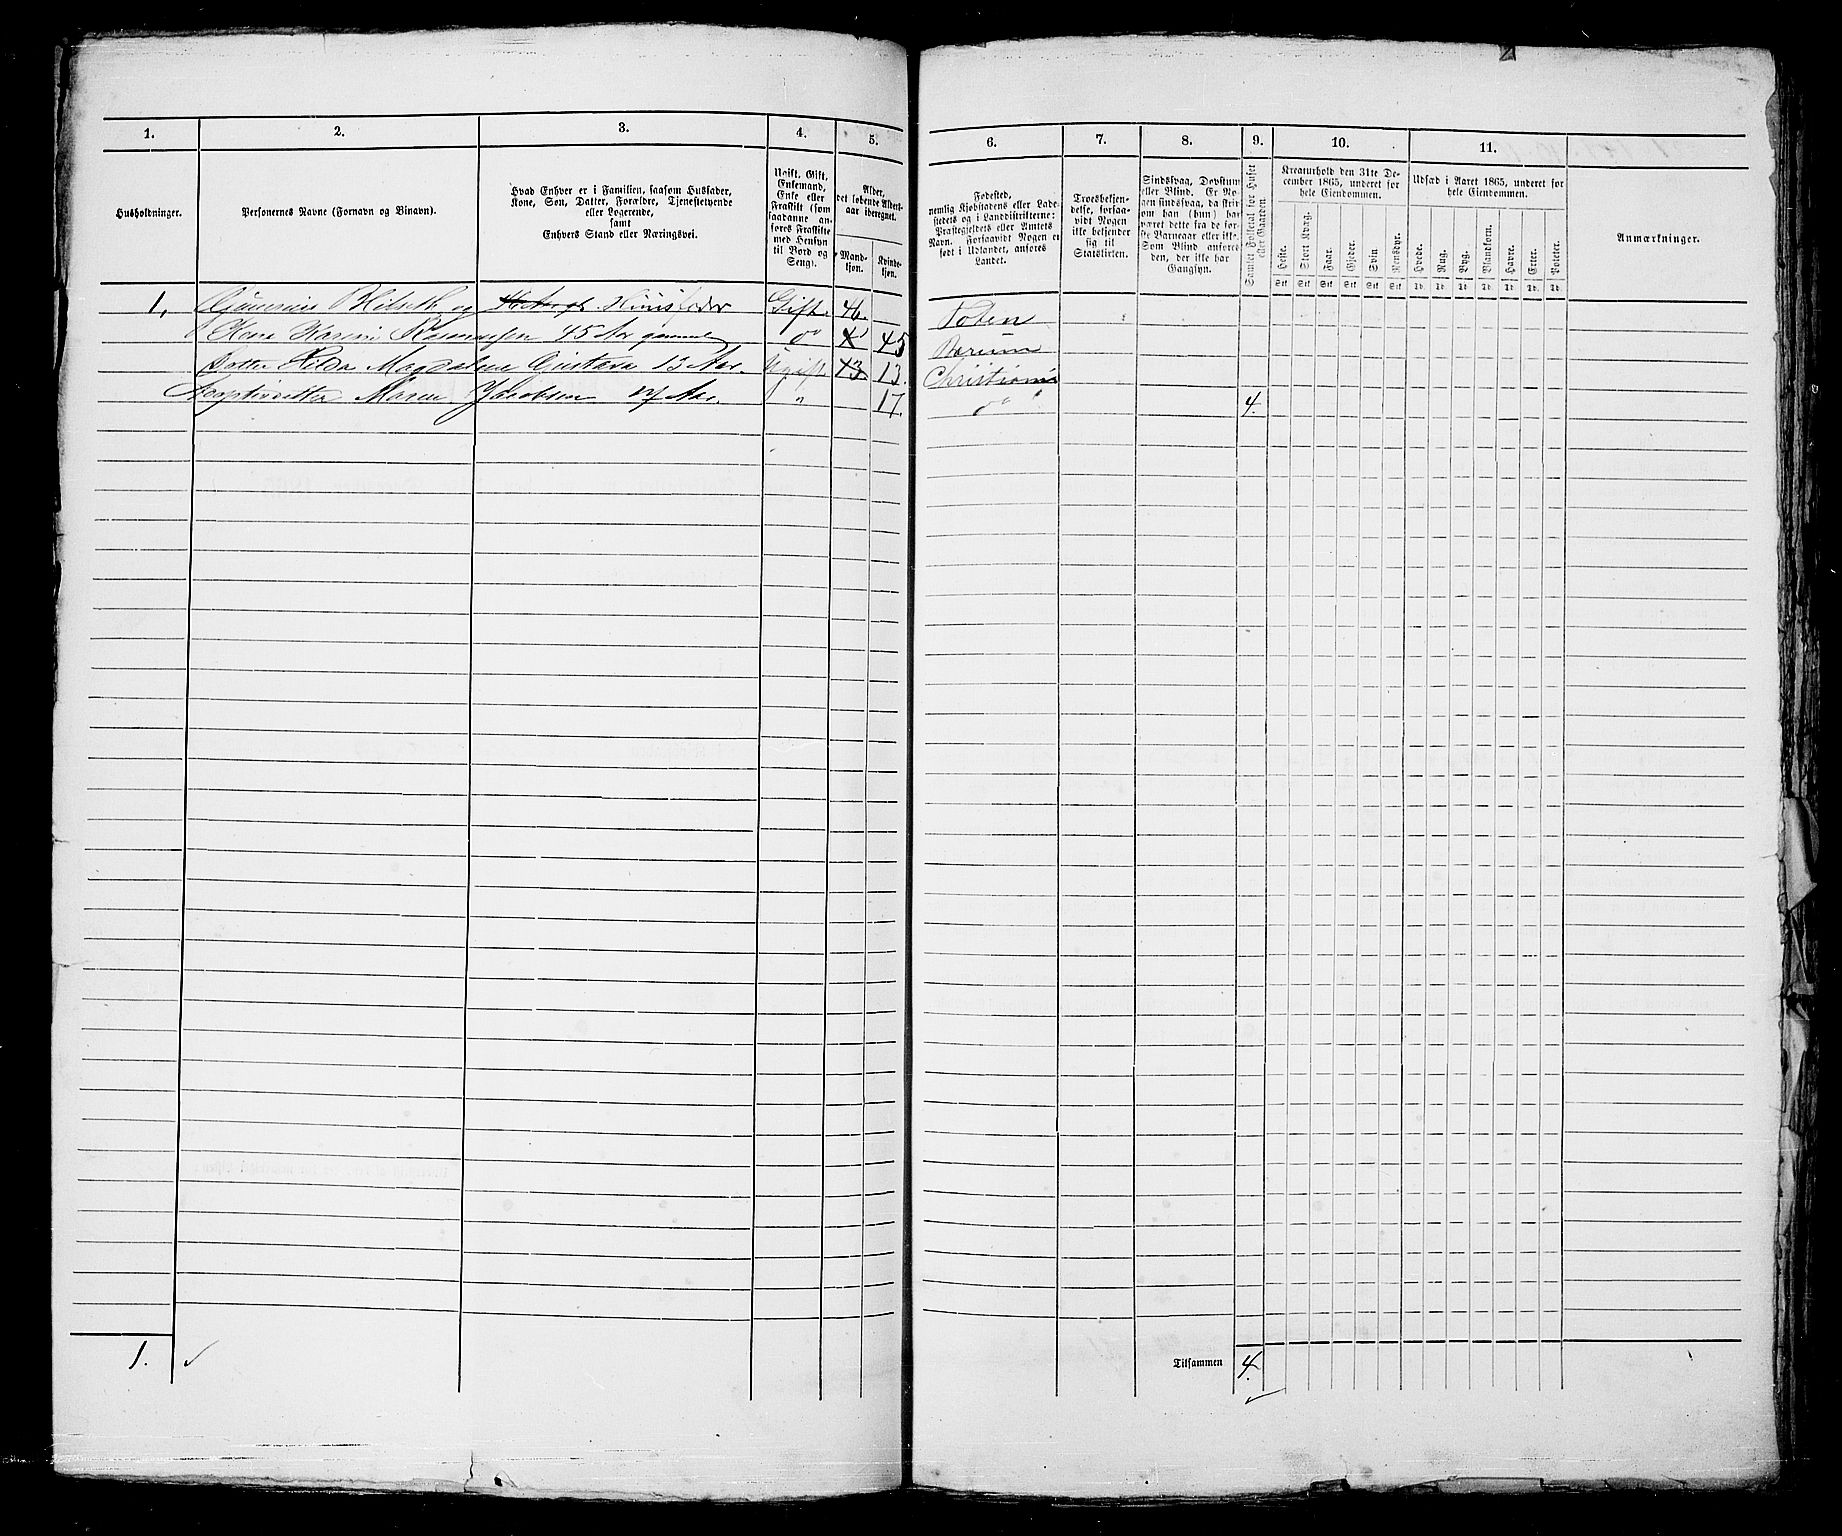 1.
2.
3.
4.
5.
6.
7.
8.
9.
10.
11.
Husholdninger.
Personernes Navne (Fornavn og Binavn).
Hvad Enhver er i Familien, saasom Husfader,
Kone, Søn, Datter, Forældre, Tjenestetyende
eller Logerende,
samt
Enhvers Stand eller Næringsvei.
Ugift, Gift,
Enkemand,
Enke eller
Fraskilt (som
saadanne an-
føres Fraskilte
med Hensyn
til Bord og
Seng).
Alder,
det løbende Alders-
aar iberegnet.
Mand-
kjøn.
Kvinde-
kjøn.
Fødested,
nemlig Kjøbstadens eller Lade-
stedets og i Landdistrikterne:
Præstegjeldets eller Amtets
Navn. Forsaavidt Nogen er
født i Udlandet, anføres
Landet.
Troesbekjen-
delse, forsaa-
vidt Nogen
ikke bekjender
sig til
Statskirken.
Sindssvag, Døvstum
eller Blind. Er No-
gen sindssvag, da skri-
ves om han (hun) har
været dette fra de før-
ste Barneaar eller ikke.
Som Blind anføres
den, der ikke har
Gangsyn.
Samlet Folketal for Huset
eller Gaarden.
Kreaturhold den 31te De-
cember 1865, underet for
hele Eiendommen.
Heste.
Stort Kvæg.
Faar.
Gjeder.
Svin.
Rensdyr.
Udsæd i Aaret 1865, underet for
hele Eiendommen.
Hvede.
Rug.
Byg.
Blandkorn.
Havre.
Erter.
Poteter.
Stk Stk Stk Stk Stk Stk
Td. Td. Td. Td. Td. Td. Td.
Anmærkninger.
1, og Huusfader Gift 46. Toten
Kone Karin Rasmussen 45 Aar gammel do 45 Bærum
Datter Hilda Magdalene Gustava 13 Aar. Ugift 13 13. Christiania
Adoptivdatter Maren Jakobsen 17 Aar. " 17. do " 4.
1.
Tilsammen 4.